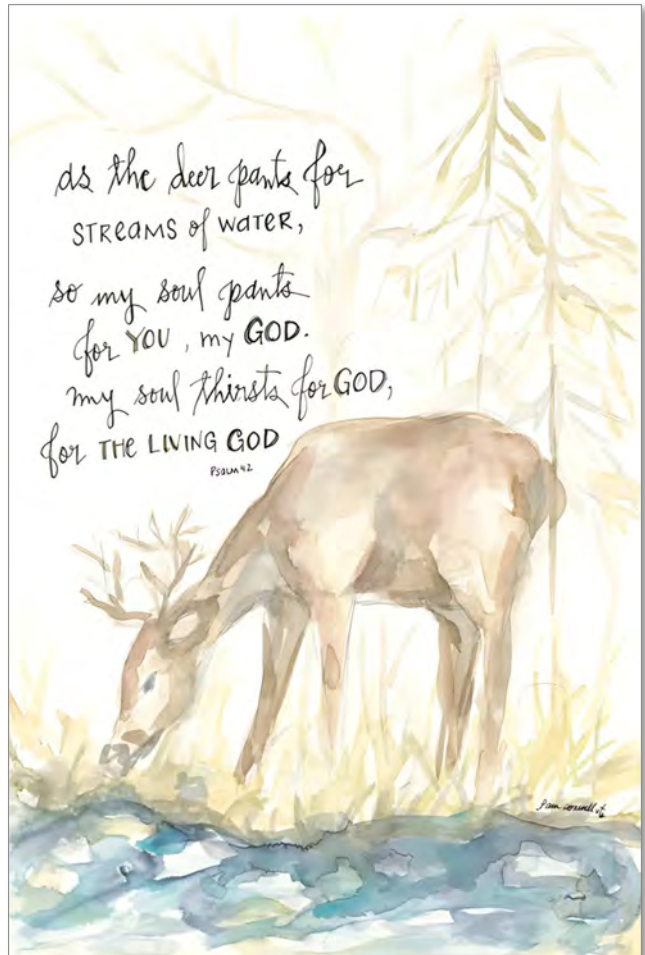 as the deer pants for
STREAMS of WATER,
so my soul pants
for YOU, my GOD.
my soul thirsts for GOD,
for THE LIVING GOD
PSALM 42